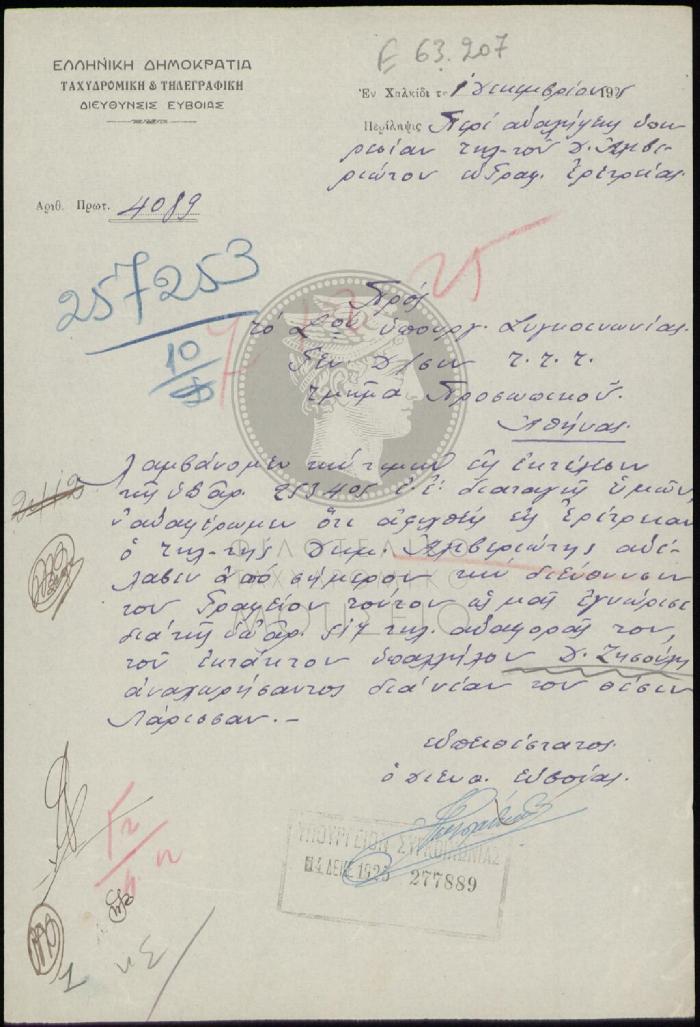 Ε 63.207
ΕΛΛΗΝΙΚΗ ΔΗΜΟΚΡΑΤΙΑ
ΤΑΧΥΔΡΟΜΙΚΗ & ΤΗΛΕΓΡΑΦΙΚΗ
ΔΙΕΥΘΥΝΣΙΣ ΕΥΒΟΙΑΣ
Ἐν Χαλκίδι τῇ 1 Δεκεμβρίου 192
Περίληψις Περί ἀναλήψεως ὑπη
ρεσίαν τηλ-τοῦ Δ. Ἀλιβε-
ριώτου Γραφ. Ἐρετρείας
Ἀριθ. Πρωτ. 4089
257253
10
25
Πρός
το Σον Ὑπουργ. Συγκοινωνίας
Γεν. Δ/σιν Τ.Τ.Τ.
τμῆμα Προσωπικοῦ
Ἀθήνας
Λαμβάνομεν τήν τιμήν εἰς ἐκτέλεσιν
τῆς ὑπ' ἀρ. 253405 ἐ.ἔ. διαταγῆς Ὑμῶν,
ν' ἀναφέρωμεν ὅτι ἀφιχθείς εἰς Ἐρέτρειαν
ὁ τηλ-τής Δημ. Ἀλιβεριώτης ἀνέ-
λαβεν ἀπό σήμερον τήν διεύθυνσιν
τοῦ Γραφείου τούτου ὡς μᾶς ἐγνώρισε
διά τῆς ὑπ' ἀρ. 517 τηλ. ἀναφορᾶς του,
τοῦ ἐκτάκτου ὑπαλλήλου Δ. Ζησούλη
ἀναχωρήσαντος διά νέαν του θέσιν
Λάρισσαν.-
εὐπειθέστατος
ὁ Διευθ. Εὐβοίας
ΥΠΟΥΡΓΕΙΟΝ ΣΥΓΚΟΙΝΩΝΙΑΣ
4 ΔΕΚ. 1925 277889
ΦΙΛΟΤΕΛΙΚΟ
ΤΑΧΥΔΡΟΜΙΚΟ
ΜΟΥΣΕΙΟ